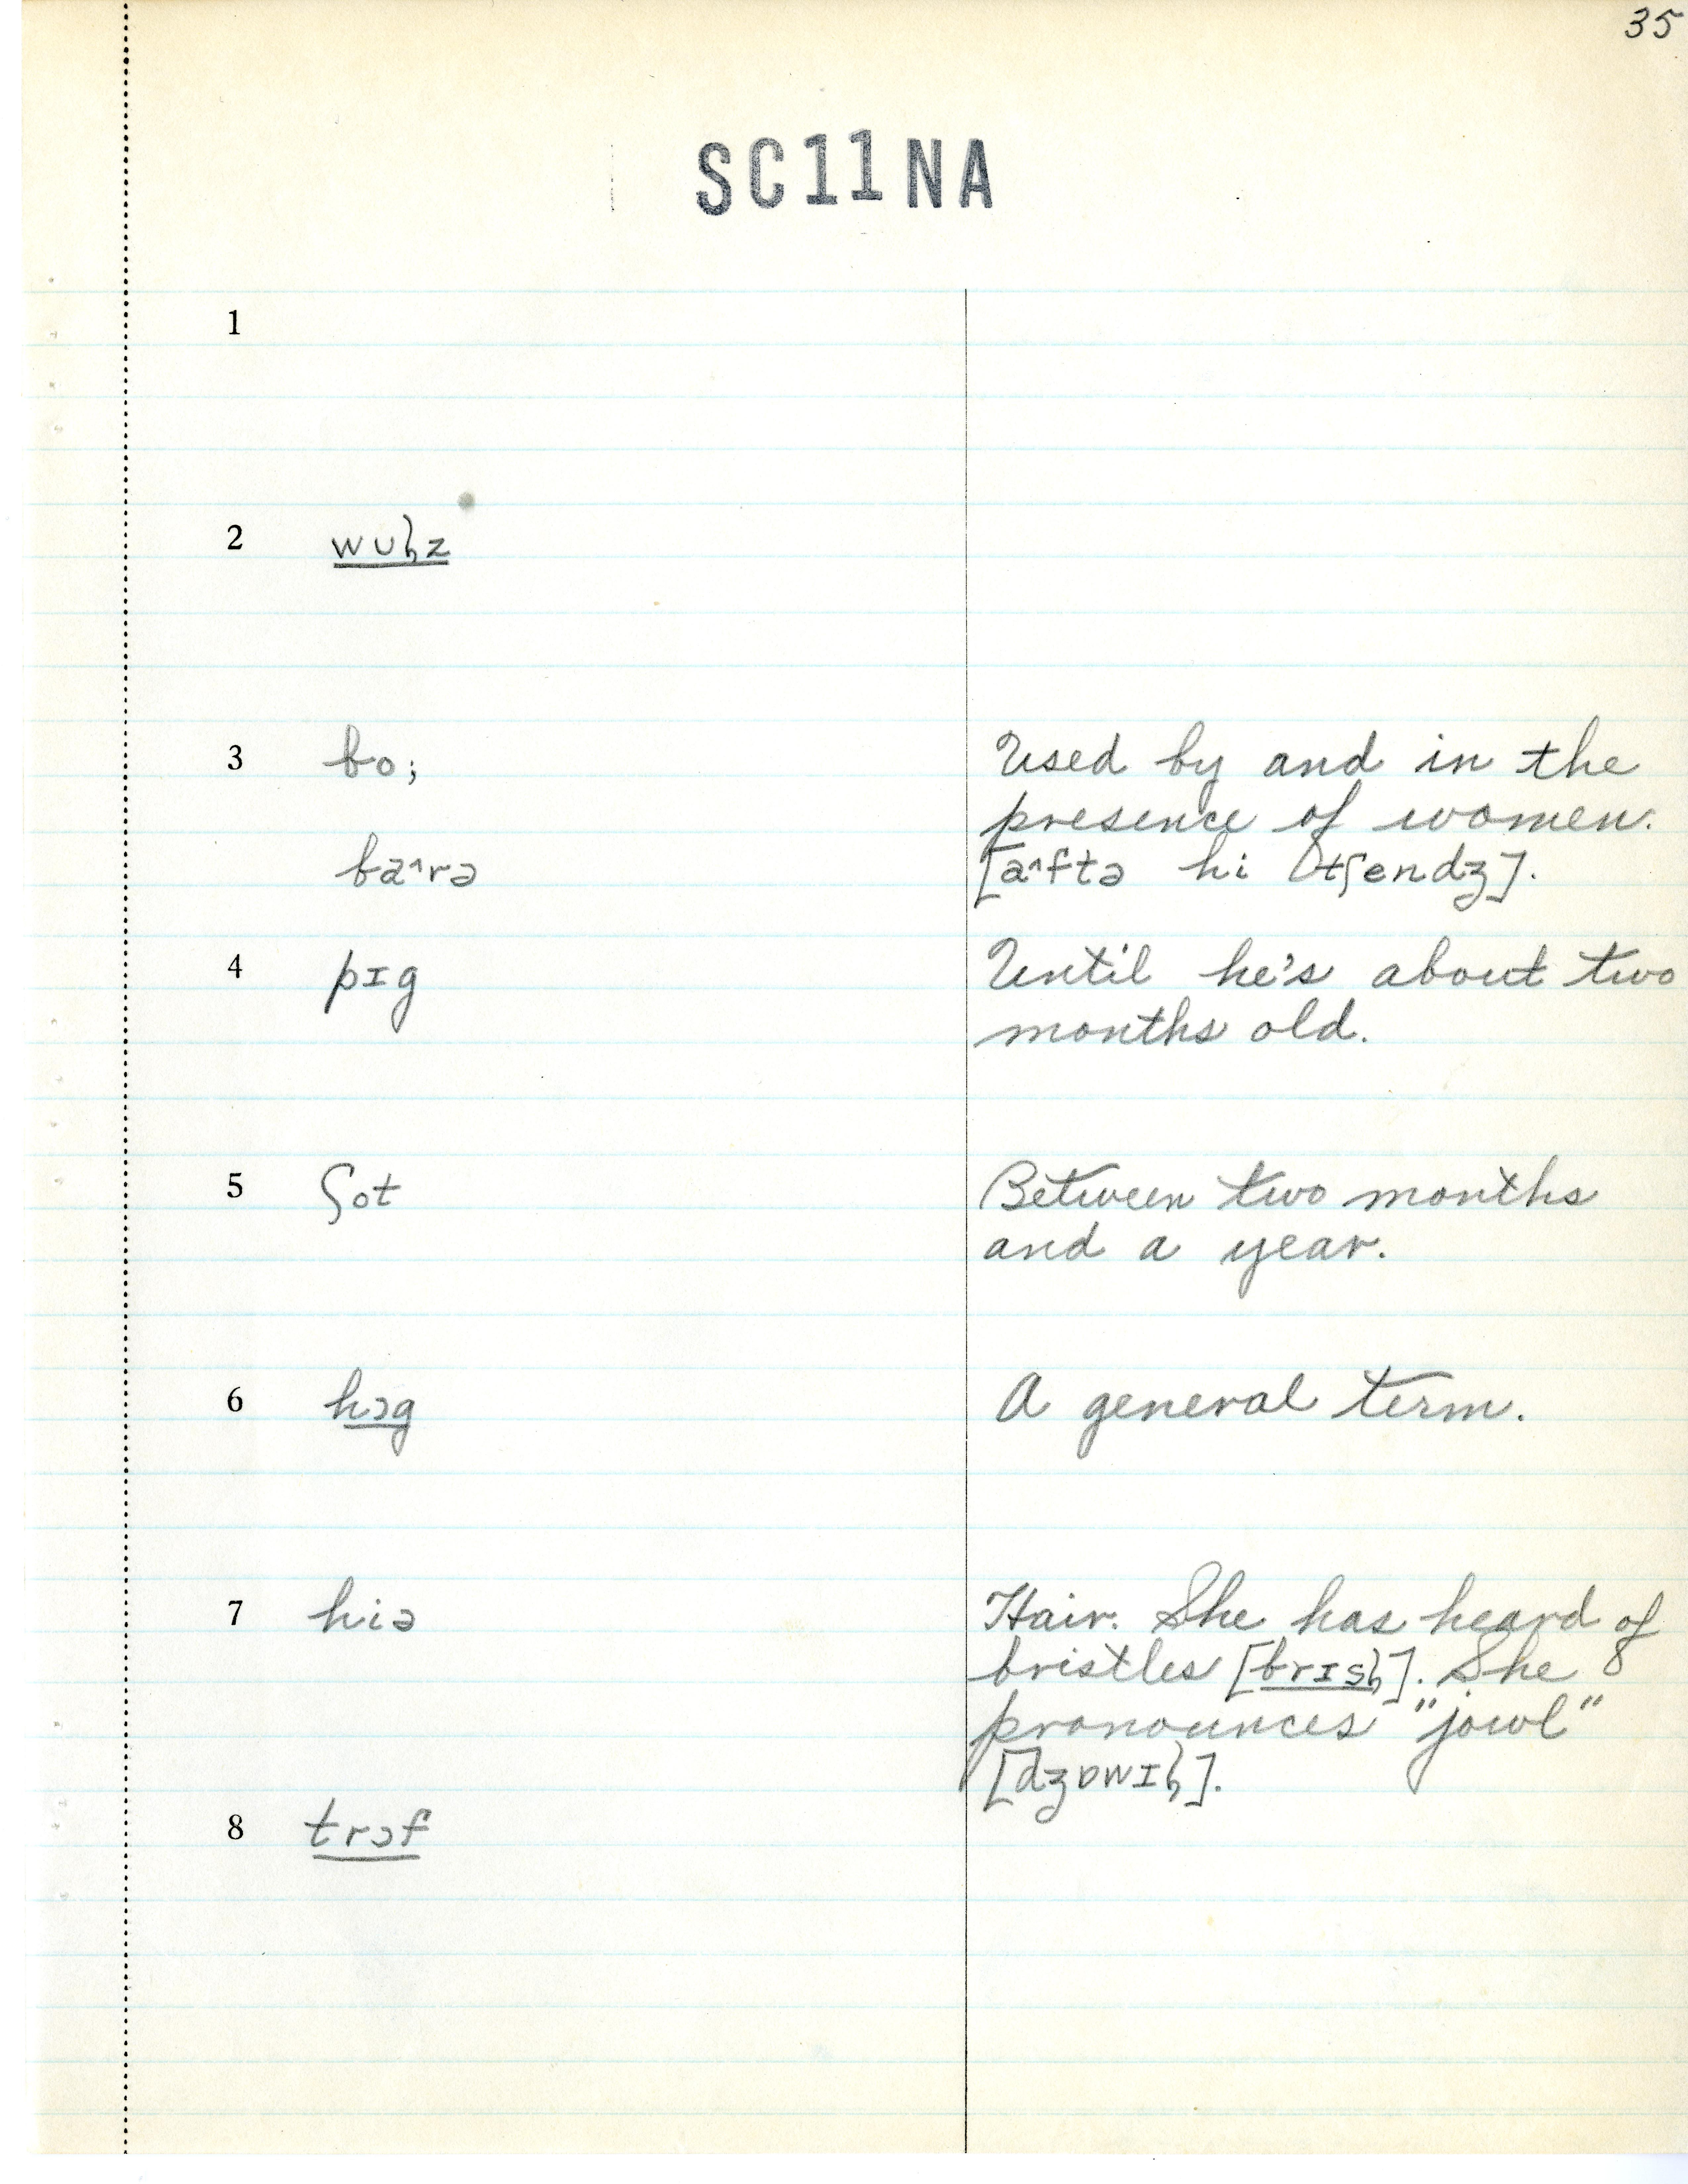 35
SC11NA
1
2 wʊɫz
3 bo; Used by and in the
presence of women.
ba^rə [a^ftə hi tʃendʒ].
4 pɪg Until he's about two
months old.
5 ʃot Between two months
and a year.
6 hɔg A general term.
7 hiə Hair. She has heard of
bristles [brɪsɫ]. She
pronounces "jowl"
[dʒɒwɪɫ].
8 trɔf